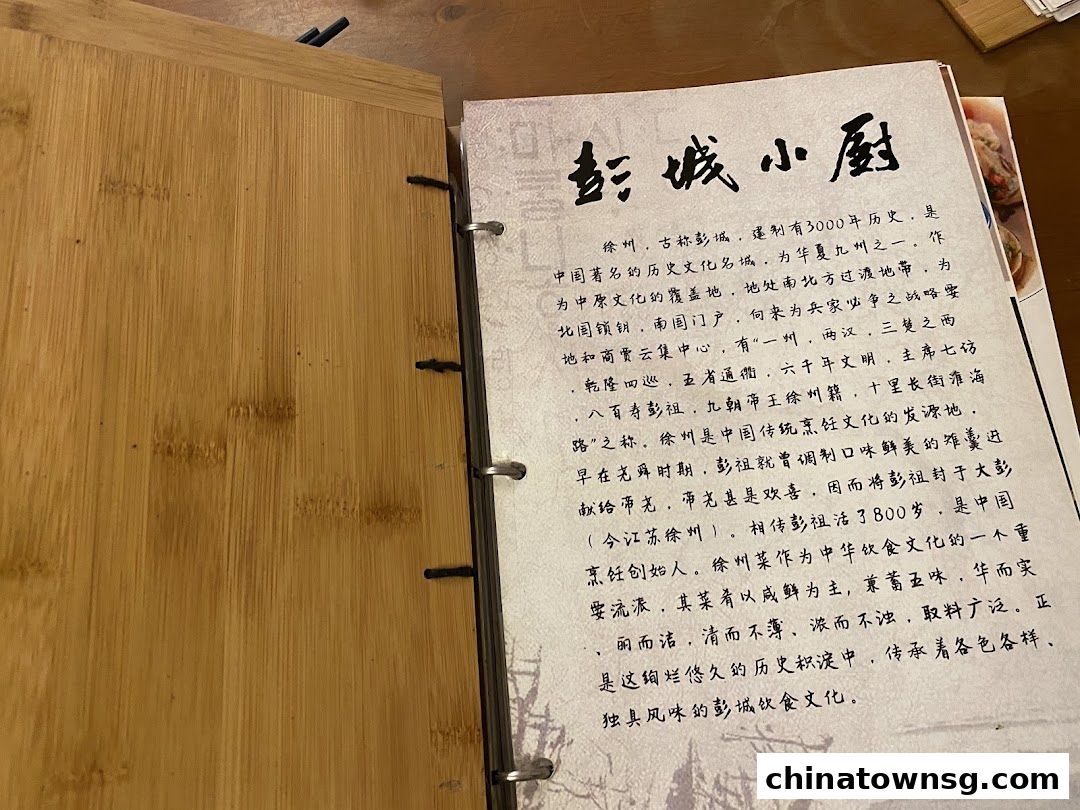 彭城小厨
徐州，古称彭城，建制有3000年历史，是
中国著名的历史文化名城，为华夏九州之一。作
为中原文化的覆盖地，地处南北方过渡地带，为
北国锁钥，南国门户，向来为兵家必争之战略要
地和商贾云集中心，有“一州，两汉，三楚之西
，乾隆四巡，五省通衢，六千年文明，主席七访
，八百寿彭祖，九朝帝王徐州籍，十里长街淮海
路”之称。徐州是中国传统烹饪文化的发源地，
早在尧舜时期，彭祖就曾调制口味鲜美的雉羹进
献给帝尧，帝尧甚是欢喜，因而将彭祖封于大彭
（今江苏徐州）。相传彭祖活了800岁，是中国
烹饪创始人。徐州菜作为中华饮食文化的一个重
要流派，其菜肴以咸鲜为主，兼蓄五味，华而实
、丽而洁，清而不薄、浓而不浊，取料广泛。正
是这绚烂悠久的历史积淀中，传承着各色各样、
独具风味的彭城饮食文化。
chinatownsg.com